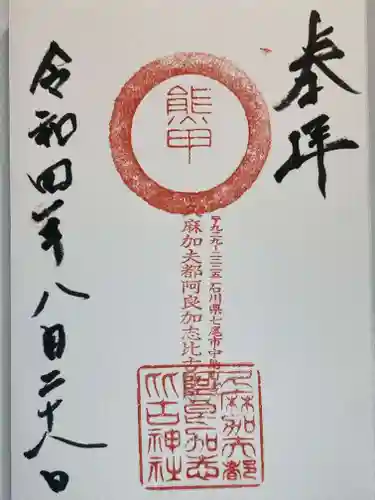 奉拝
熊甲
〒九二九-二二三五 石川県七尾市中島町
麻加夫都阿良加志比古
久麻加夫都
阿良加志
比古神社
令和四年八月二十八日